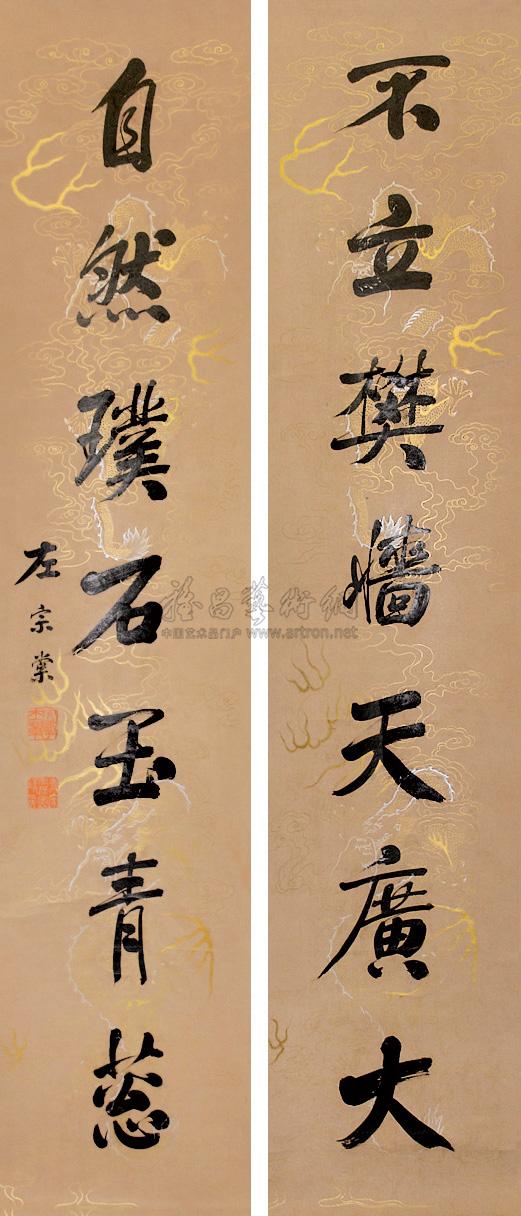 不立樊牆天廣大
自然璞石玉青葱
左宗棠
雅昌藝術網
中国艺术品门户 www.artron.net